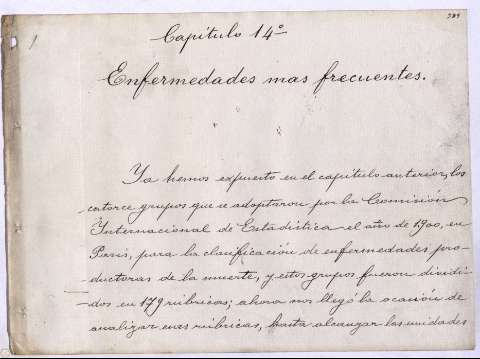 389
Capítulo 14º
Enfermedades mas frecuentes.
Ya hemos expuesto en el capítulo anterior, los
catorce grupos que se adoptaron por la Comisión
Internacional de Estadística el año de 1900, en
Paris, para la clasificación de enfermedades pro-
ductoras de la muerte, y estos grupos fueron dividi-
dos en 179 rúbricas; ahora nos llegó la ocasión de
analizar esas rúbricas, hasta alcanzar las unidades